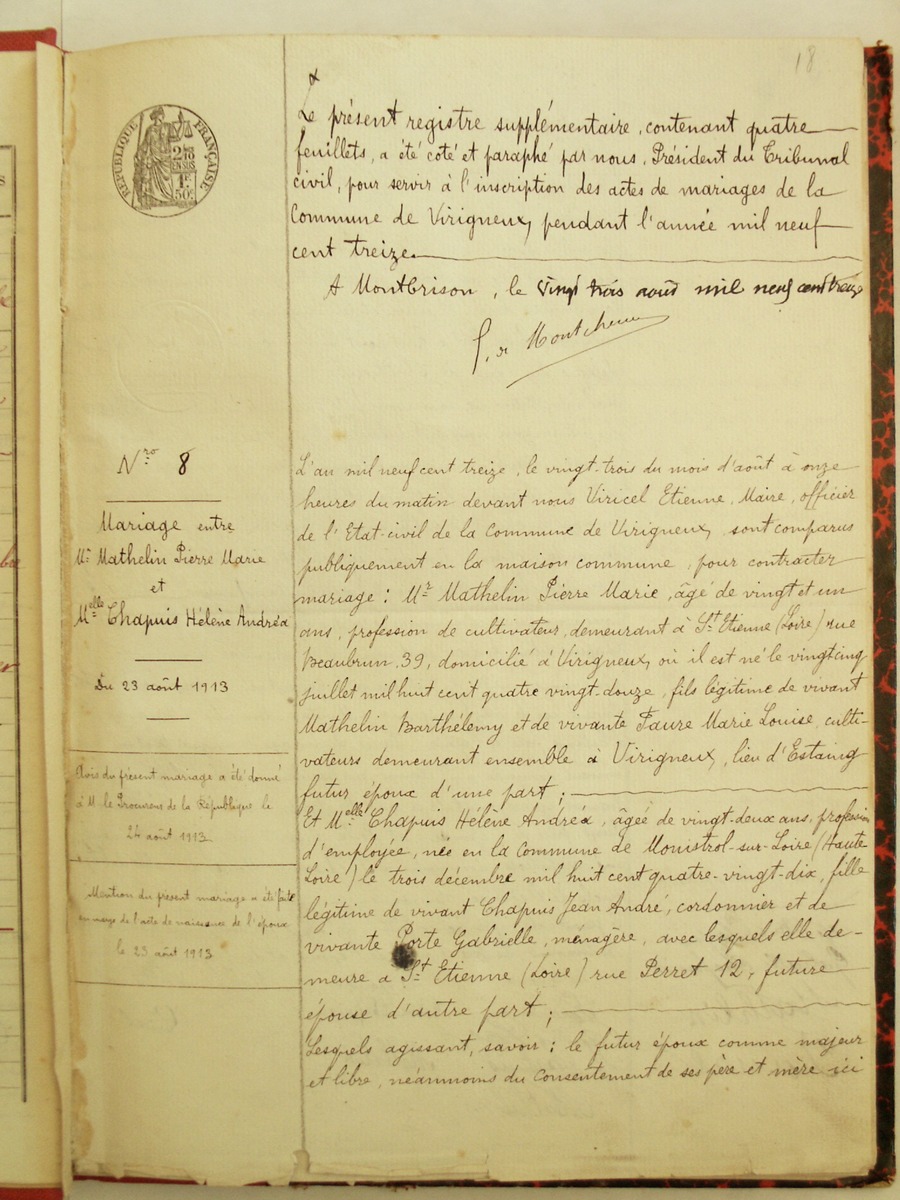 18
RÉPUBLIQUE FRANÇAISE
2/10
EN SUS
1F
50c
Le présent registre supplémentaire, contenant quatre
feuillets, a été coté et paraphé par nous, Président du Tribunal
civil, pour servir à l'inscription des actes de mariages de la
Commune de Virigneux, pendant l'année mil neuf
cent treize.
A Montbrison, le vingt trois août mil neuf cent treize
Nro 8
Mariage entre
Mr Mathelin Pierre Marie
et
Melle Chapuis Hélène Andréa
Du 23 août 1913
Avis du présent mariage a été donné
à M. le Procureur de la République le
24 août 1913
Mention du présent mariage a été faite
en marge de l'acte de naissance de l'époux
le 23 août 1913
L'an mil neuf cent treize, le vingt-trois du mois d'août à onze
heures du matin devant nous Viricel Etienne, Maire, officier
de l'Etat-civil de la Commune de Virigneux, sont comparus
publiquement en la maison commune, pour contracter
mariage : Mr Mathelin Pierre Marie, âgé de vingt et un
ans, profession de cultivateur, demeurant à St Etienne (Loire) rue
Beaubrun, 39, domicilié à Virigneux, où il est né le vingt cinq
juillet mil huit cent quatre vingt-douze, fils légitime de vivant
Mathelin Barthélemy et de vivante Faure Marie Louise, culti-
vateurs demeurant ensemble à Virigneux, lieu d'Estaing
futur époux d'une part ;
Et Melle Chapuis Hélène Andréa, âgée de vingt-deux ans, profession
d'employée, née en la commune de Monistrol-sur-Loire (Haute
Loire) le trois décembre mil huit cent quatre-vingt-dix, fille
légitime de vivant Chapuis Jean André, cordonnier et de
vivante Porte Gabrielle, ménagère, avec lesquels elle de-
meure à St Etienne (Loire) rue Perret 12, future
épouse d'autre part ;
Lesquels agissant, savoir : le futur époux comme majeur
et libre, néanmoins du consentement de ses père et mère ici